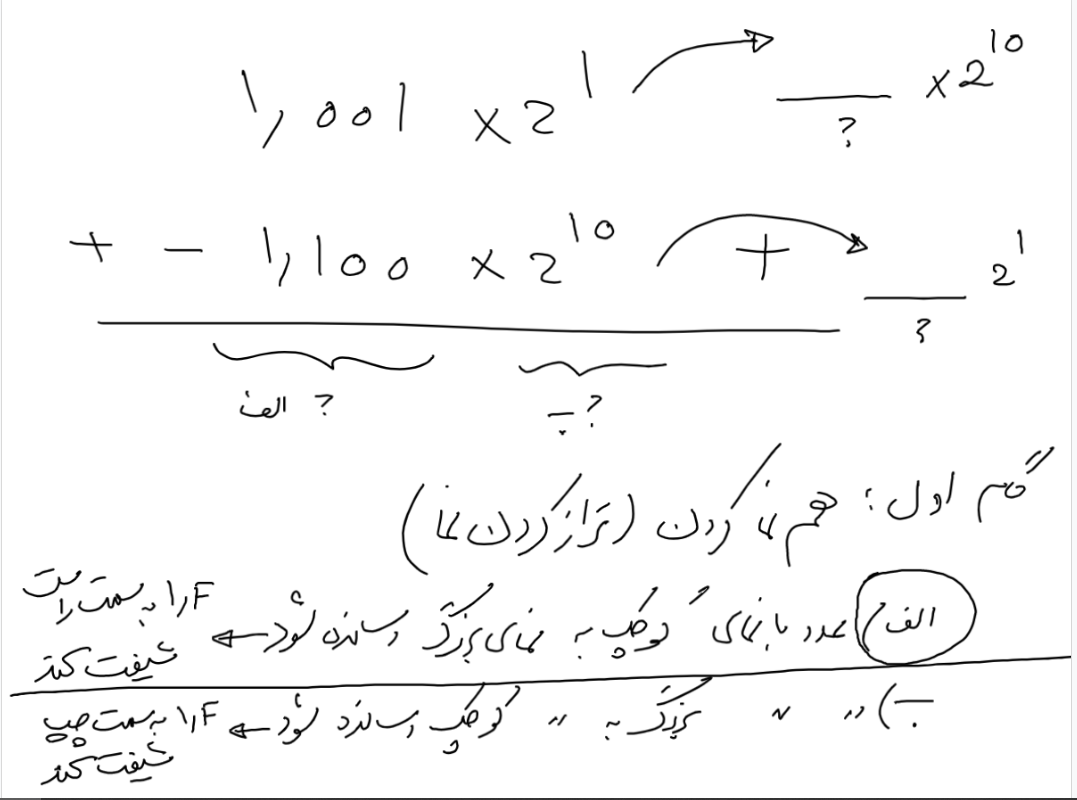 1,001 × 2^1 → ___ × 2^10
?
+ - 1,100 × 2^10 + → ___ 2^1
?
الف ? ب ?
گام اول: هم نما کردن (تراز کردن نما)
الف) عدد با نمای کوچک به نمای بزرگ رسانده شود ← 1,F را به سمت راست شیفت کند
ب) 〃 〃 بزرگ به 〃 کوچک رسانده شود ← 1,F را به سمت چپ شیفت کند